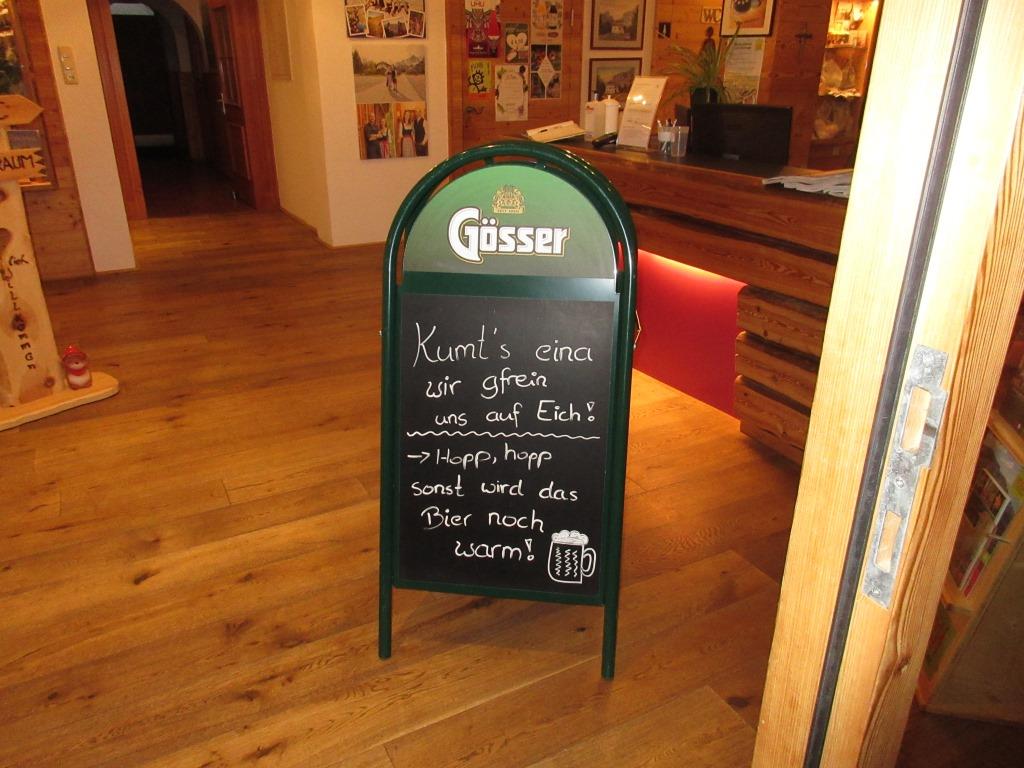 UHU
WC
RAUM
Willkommen
Gösser
Kumt's eina
wir gfrein
uns auf Eich!
→ Hopp, hopp
sonst wird das
Bier noch
warm!